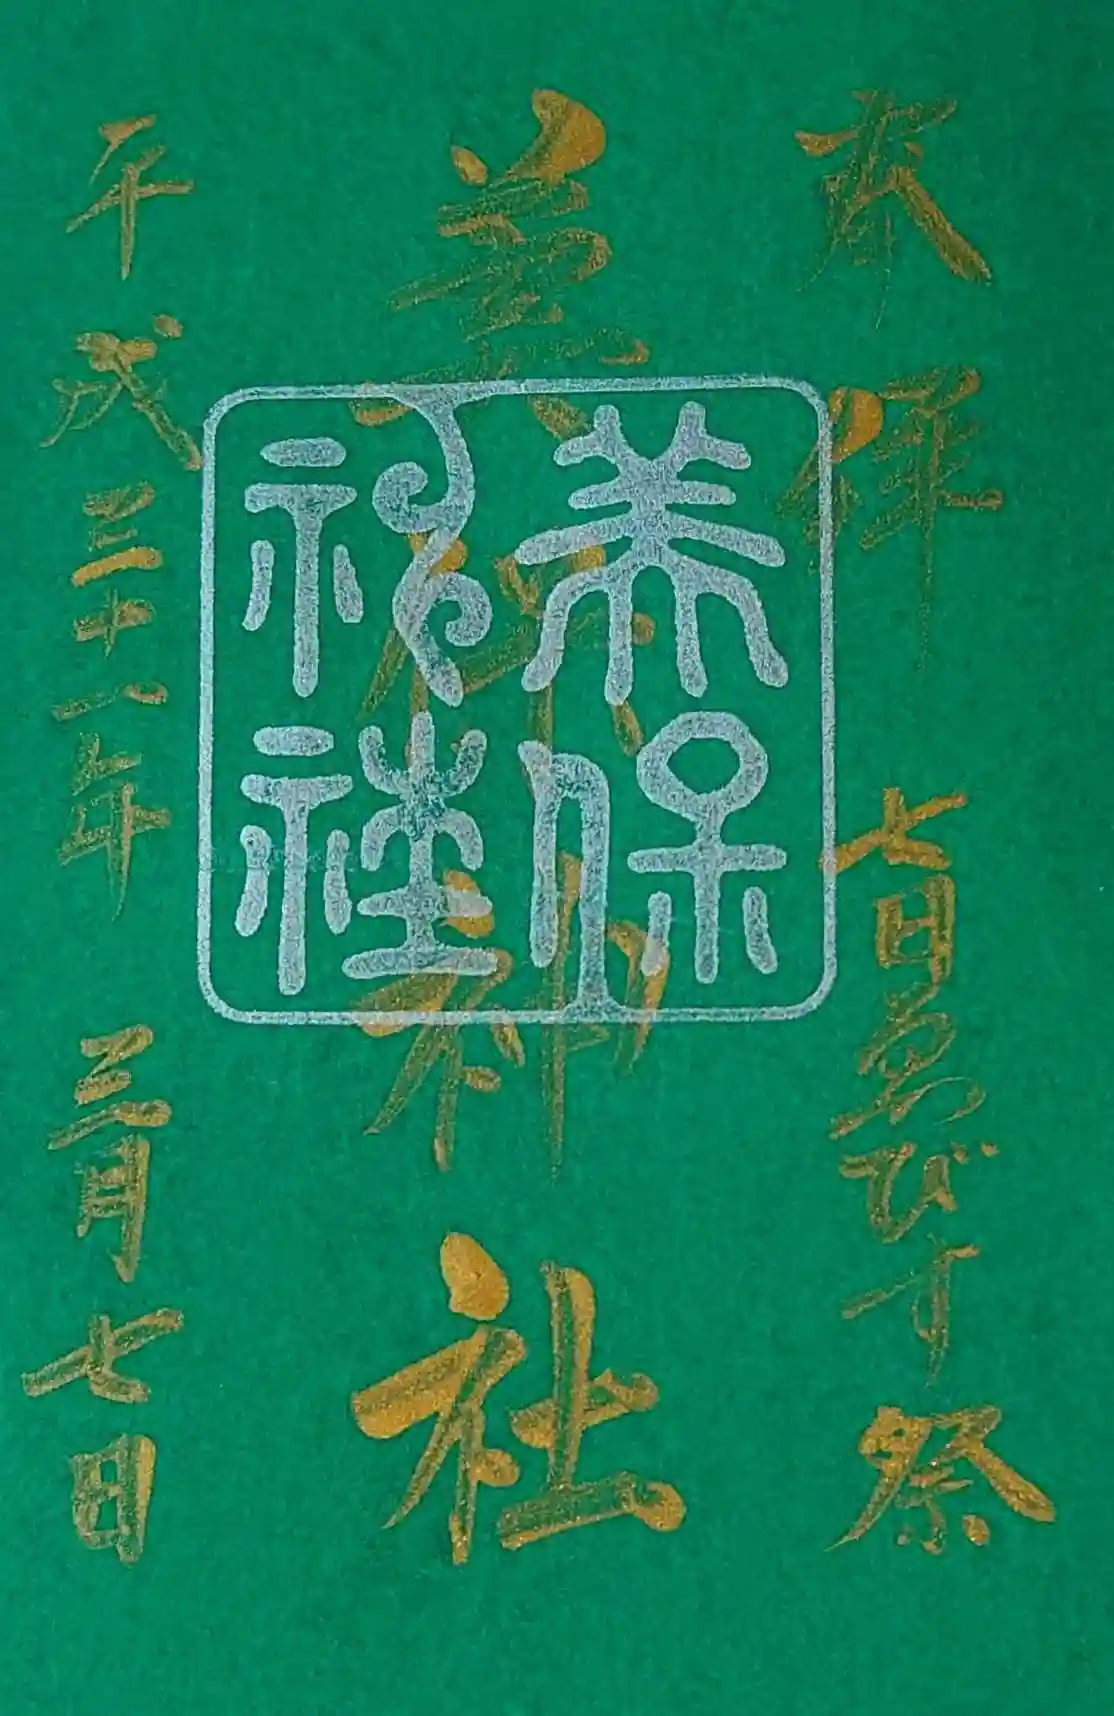 奉拝 七日ゑびす祭
美保神社
平成三十一年 三月七日
美保
神社